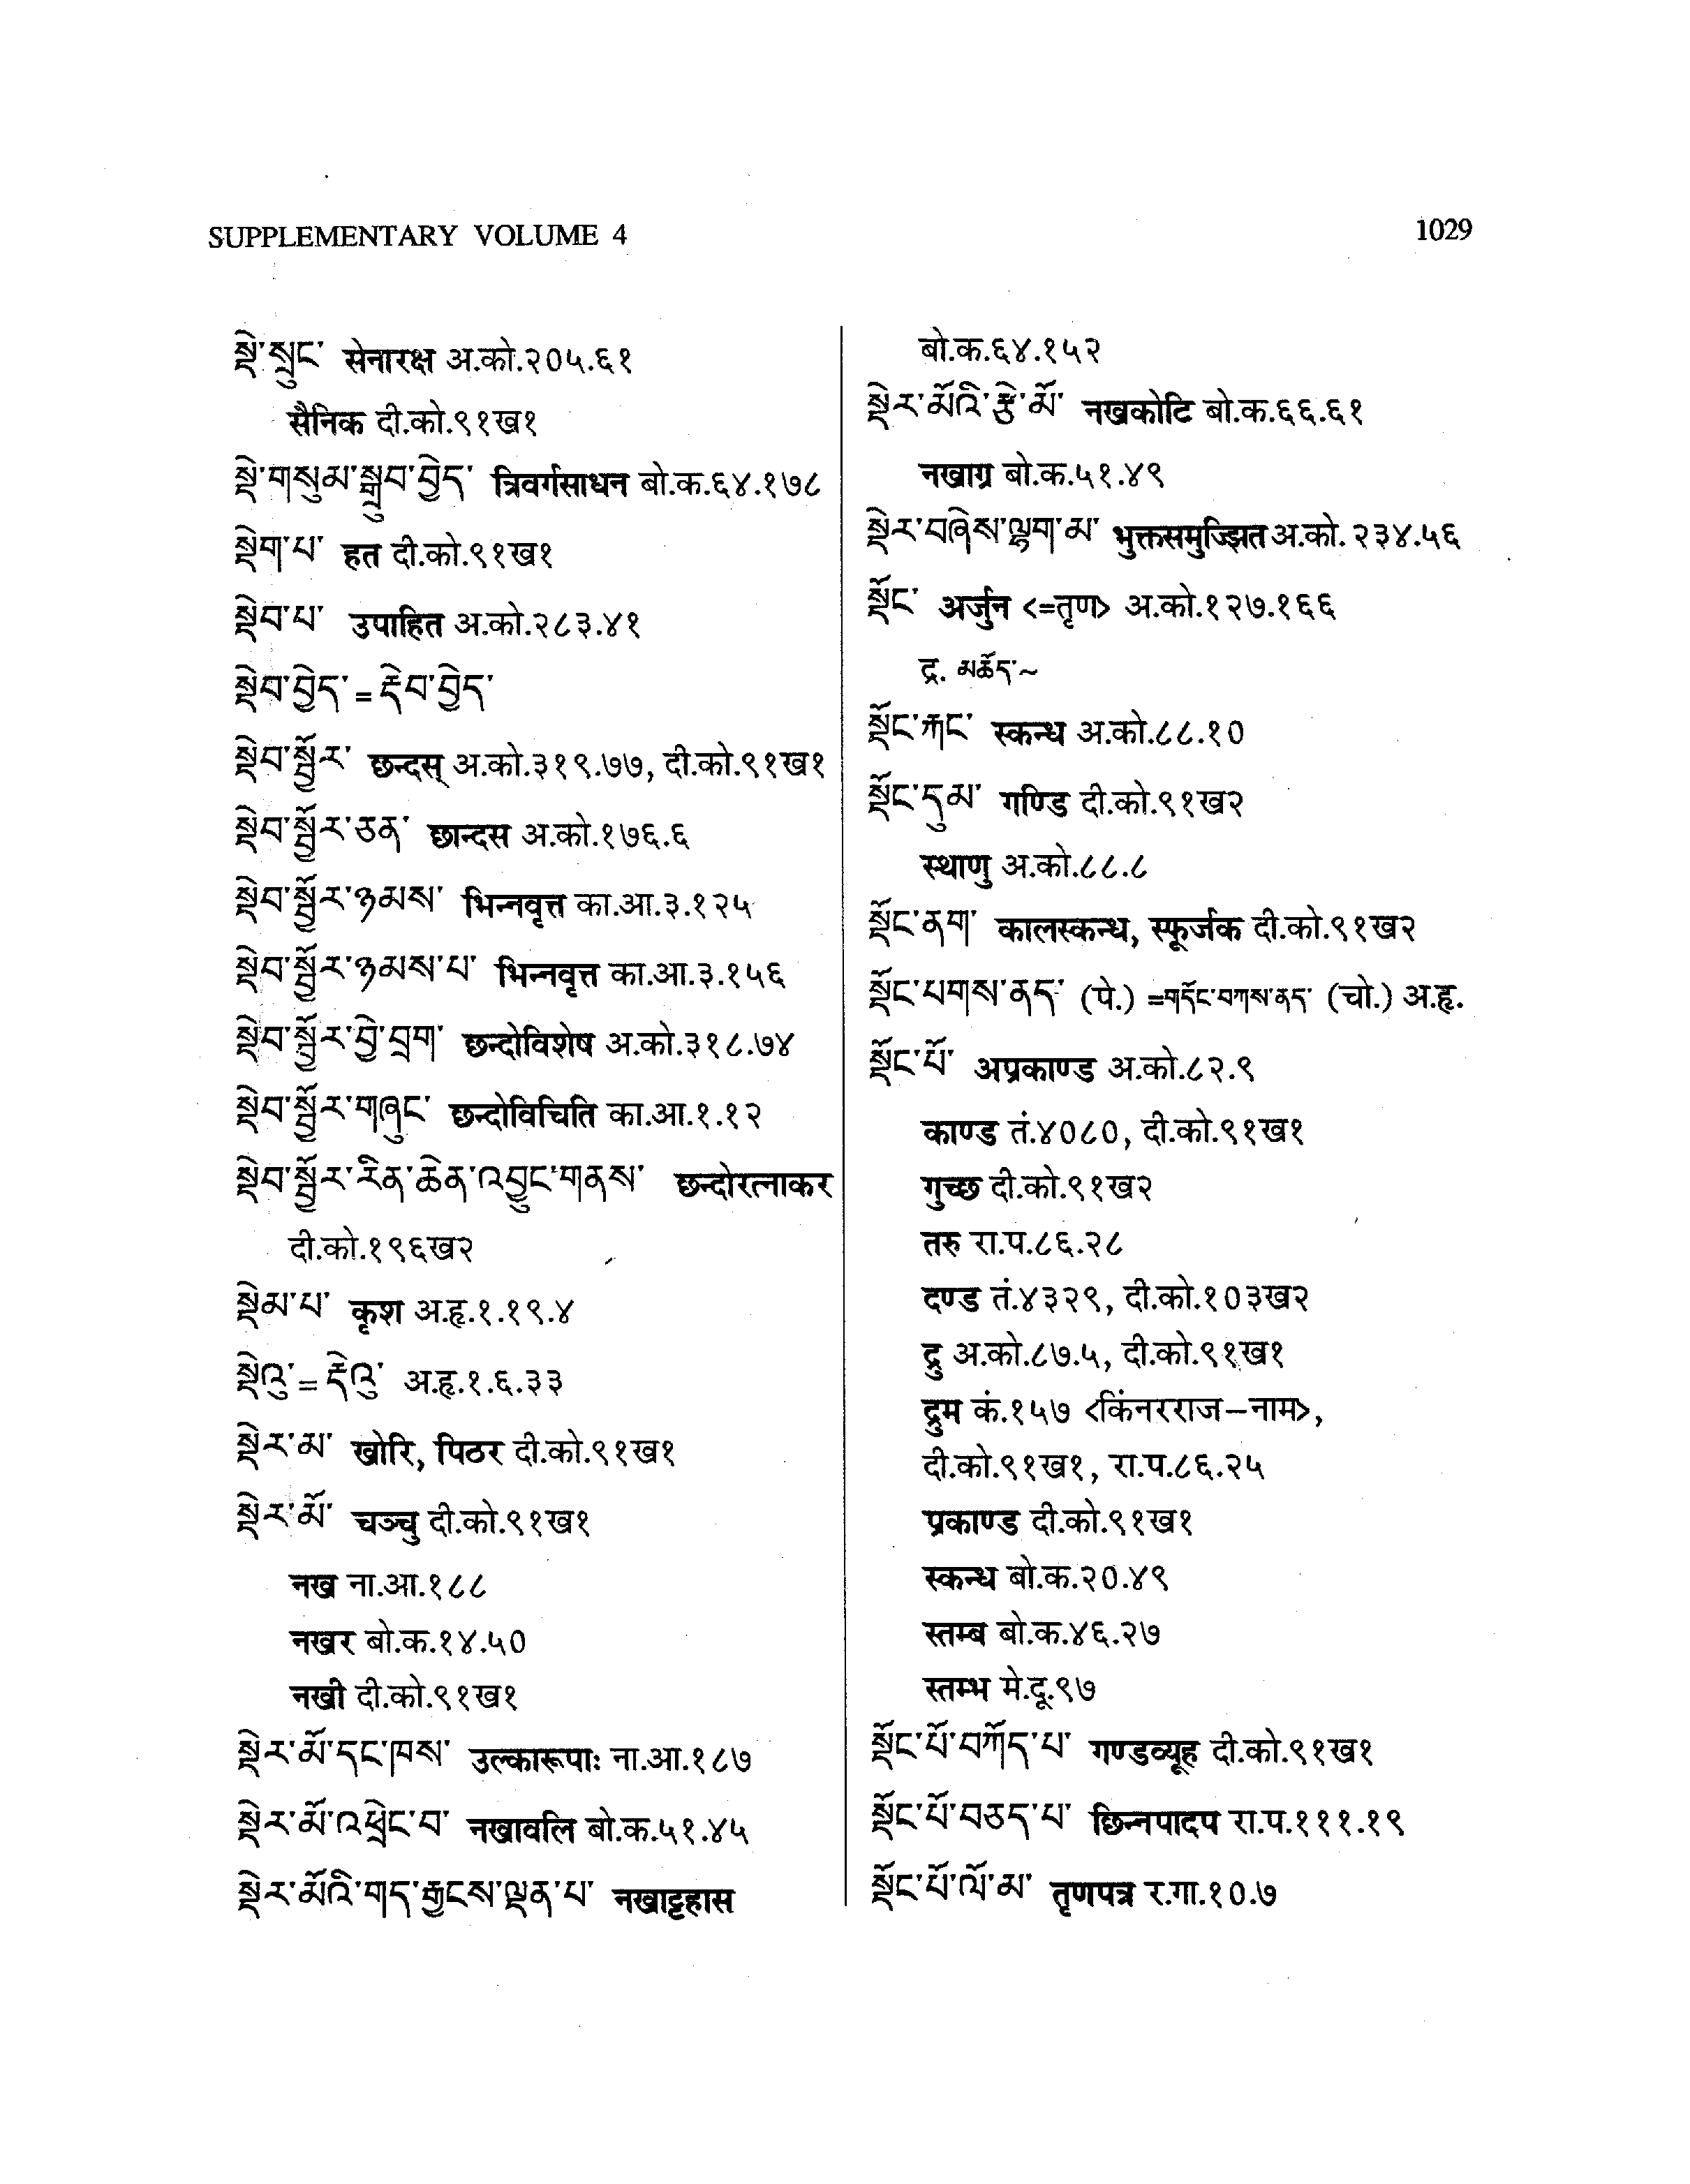 SUPPLEMENTARY VOLUME 4
1029
སྡེ་སྲུང་ सेनारक्ष अ.को.२०५.६१
सैनिक दी.को.९१ख१
སྡེ་གསུམ་སྒྲུབ་བྱེད་ त्रिवर्गसाधन बो.क.६४.१७८
སྡེག་པ་ हत दी.को.९१ख१
སྡེབ་པ་ उपाहित अ.को.२८३.४१
སྡེབ་བྱེད་=རྡེབ་བྱེད་
སྡེབ་སྦྱོར་ छन्दस् अ.को.३१९.७७, दी.को.९१ख१
སྡེབ་སྦྱོར་ཅན་ छान्दस अ.को.१७६.६
སྡེབ་སྦྱོར་ཉམས་ भिन्नवृत्त का.आ.३.१२५
སྡེབ་སྦྱོར་ཉམས་པ་ भिन्नवृत्त का.आ.३.१५६
སྡེབ་སྦྱོར་བྱེ་བྲག་ छन्दोविशेष अ.को.३१८.७४
སྡེབ་སྦྱོར་གཞུང་ छन्दोविचिति का.आ.१.१२
སྡེབ་སྦྱོར་རིན་ཆེན་འབྱུང་གནས་ छन्दोरत्नाकर
दी.को.१९६ख२
སྡེམ་པ་ कृश अ.हृ.१.१९.४
སྡེའུ་=རྡེའུ་ अ.हृ.१.६.३३
སྡེར་མ་ खोरि, पिठर दी.को.९१ख१
སྡེར་མོ་ चञ्चु दी.को.९१ख१
नख ना.आ.१८८
नखर बो.क.१४.५०
नखी दी.को.९१ख१
སྡེར་མོ་དང་ཁས་ उल्कारूपाः ना.आ.१८७
སྡེར་མོ་འཕྲེང་བ་ नखावलि बो.क.५१.४५
སྡེར་མོའི་གད་རྒྱངས་ལྡན་པ་ नखाट्टहास
बो.क.६४.१५२
སྡེར་མོའི་རྩེ་མོ་ नखकोटि बो.क.६६.६१
नखाग्र बो.क.५१.४९
སྡེར་བཞེས་ལྷག་མ་ भुक्तसमुज्झित अ.को. २३४.५६
སྡོང་ अर्जुन <=तृण> अ.को.१२७.१६६
द्र. མཆོད་~
སྡོང་རྐང་ स्कन्ध अ.को.८८.१०
སྡོང་དུམ་ गण्डि दी.को.९१ख२
स्थाणु अ.को.८८.८
སྡོང་ནག་ कालस्कन्ध, स्फूर्जक दी.को.९१ख२
སྡོང་པགས་ནད་ (पे.) =གདོང་བཀས་ནད་ (चो.) अ.हृ.
སྡོང་པོ་ अप्रकाण्ड अ.को.८२.९
काण्ड तं.४०८०, दी.को.९१ख१
गुच्छ दी.को.९१ख२
तरु रा.प.८६.२८
दण्ड तं.४३२९, दी.को.१०३ख२
द्रु अ.को.८७.५, दी.को.९१ख१
द्रुम कं.१५७ <किंनरराज-नाम>,
दी.को.९१ख१, रा.प.८६.२५
प्रकाण्ड दी.को.९१ख१
स्कन्ध बो.क.२०.४९
स्तम्ब बो.क.४६.२७
स्तम्भ मे.दू.९७
སྡོང་པོ་བཀོད་པ་ गण्डव्यूह दी.को.९१ख१
སྡོང་པོ་བཅད་པ་ छिन्नपादप रा.प.१११.१९
སྡོང་པོ་ལོ་མ་ तृणपत्र र.गा.१०.७